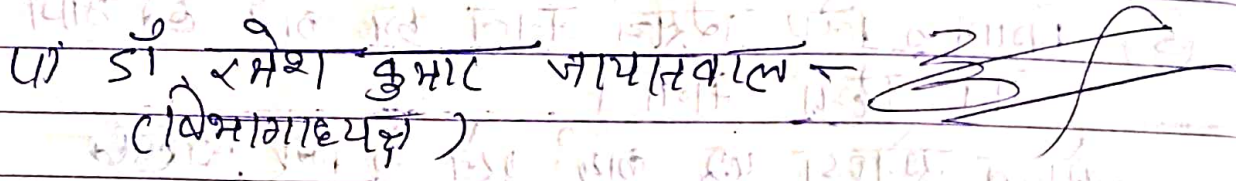 डॉ रमेश कुमार जायसवाल -
(विभागाध्यक्ष)